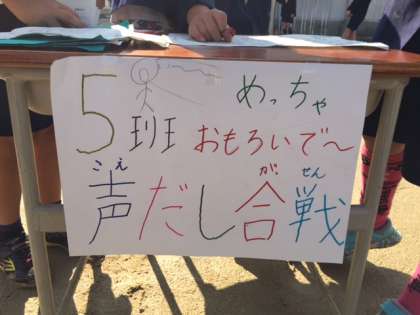 めっちゃ
5班 おもろいで〜
声だし合戦
こえ
がっせん